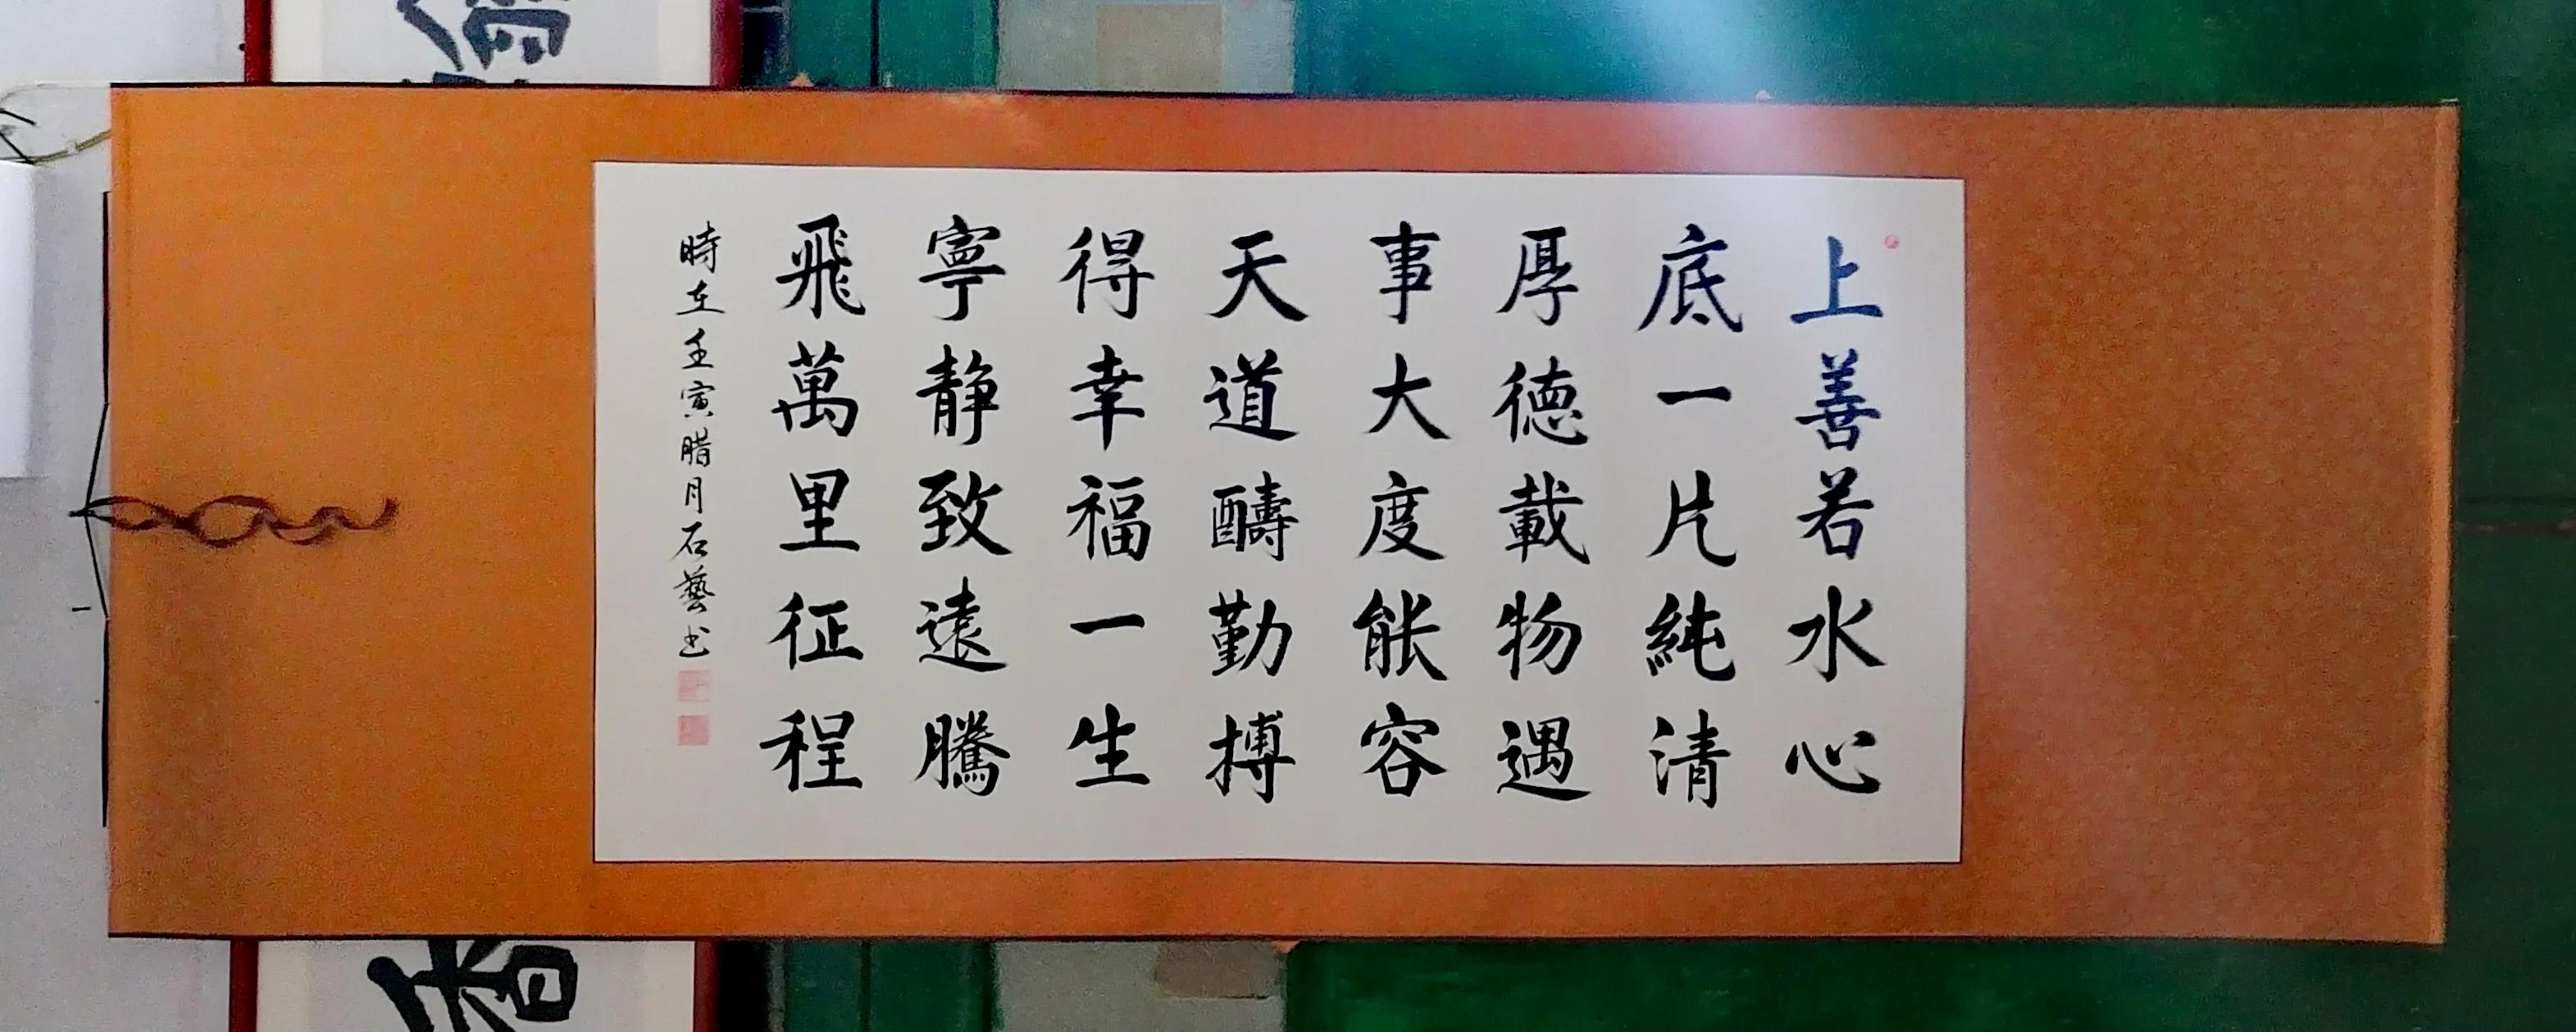 上善若水心
底一片純清
厚德載物遇
事大度能容
天道酬勤搏
得幸福一生
寧静致遠騰
飛萬里征程
時在壬寅腊月石藝书